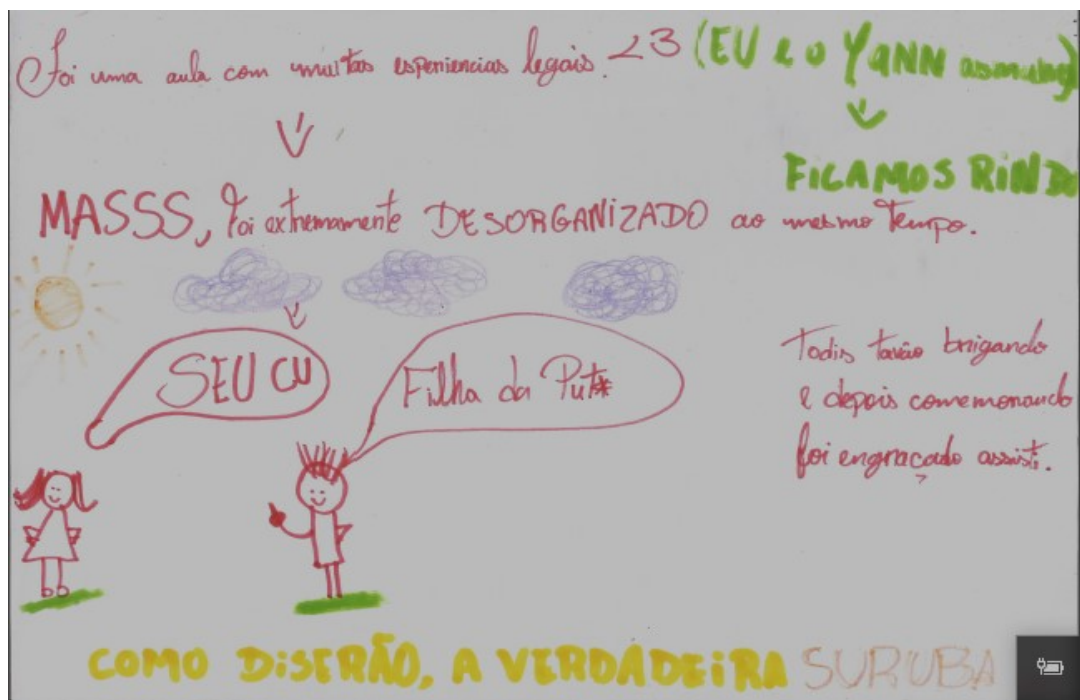 Foi uma aula com muitas esperiencias legais. <3 (EU e o YANN
FICAMOS RINDO
MASSS, foi extremamente DESORGANIZADO ao mesmo tempo.
SEU CU
Filha da Put*
Todis tavão brigando
e depois comemorando
foi engraçado assisti.
COMO DISERÃO, A VERDADEIRA SURUBA